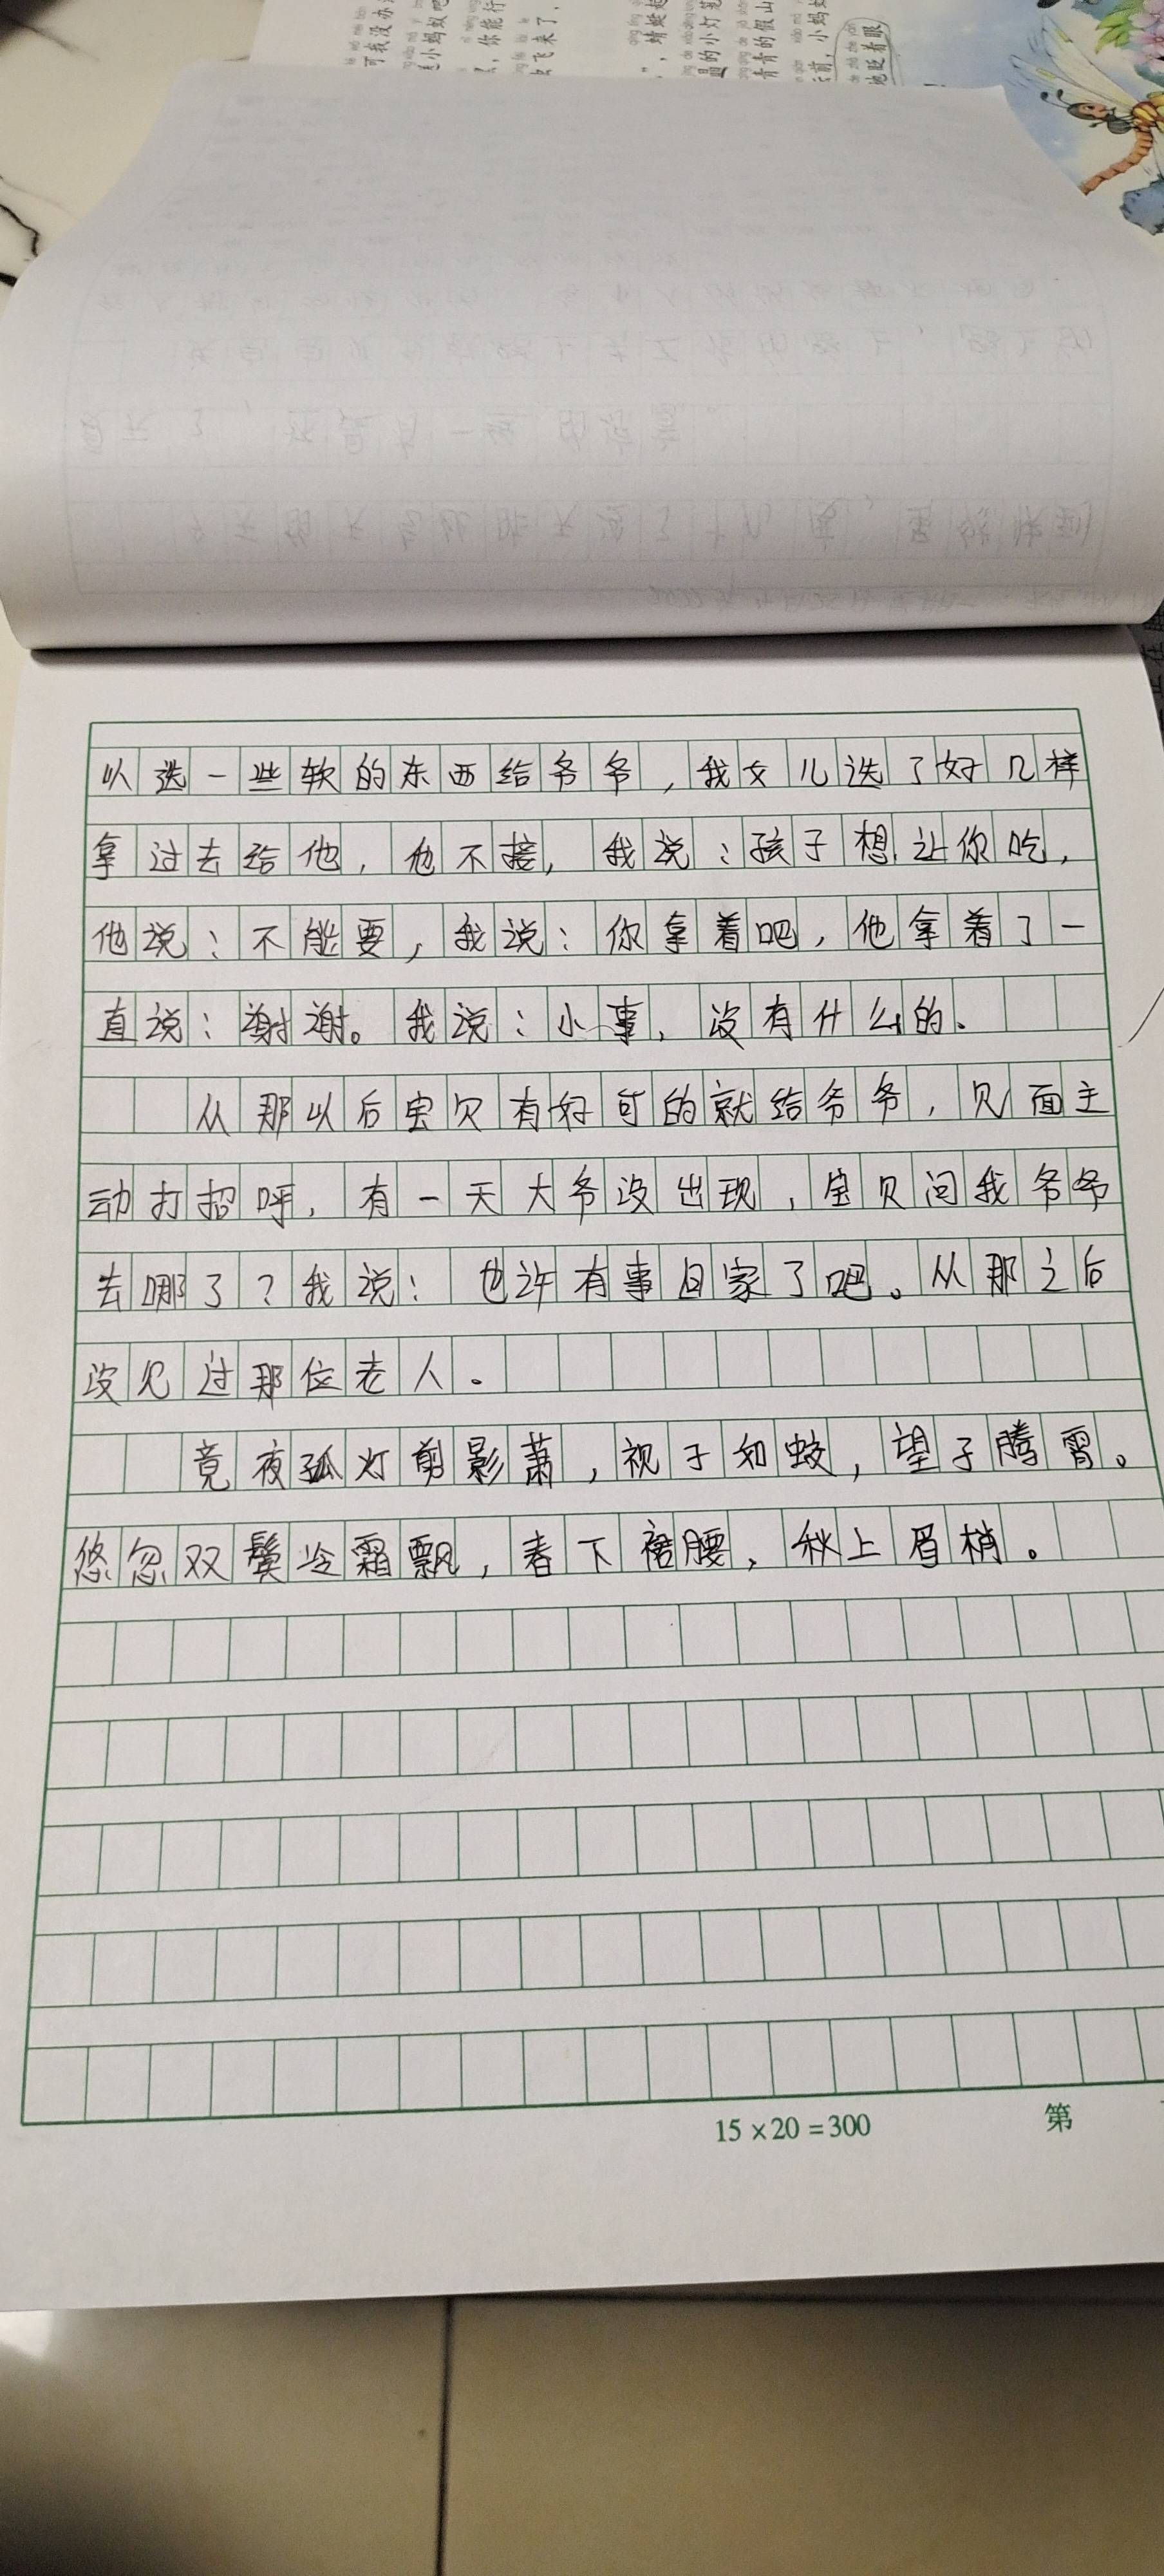 可我没办
小蚂蚁吧
，你能行
飞来了，
”，蜻蜓
晶的小灯笼
青青的假山
前，小蚂
地眨着眼
以选一些软的东西给爷爷，我女儿选了好几样
拿过去给他，他不接，我说：孩子想让你吃，
他说：不能要，我说：你拿着吧，他拿着了一
直说：谢谢。我说：小事，没有什么的、
从那以后宝贝有好吃的就给爷爷，见面主
动打招呼，有一天大爷没出现，宝贝问我爷爷
去哪了？我说：也许有事回家了吧。从那之后
没见过那位老人。
竟夜孤灯剪影萧，视子如蛟，望子腾霄。
悠忽双鬓冷霜飘，春下裙腰，秋上眉梢。
15×20=300
第